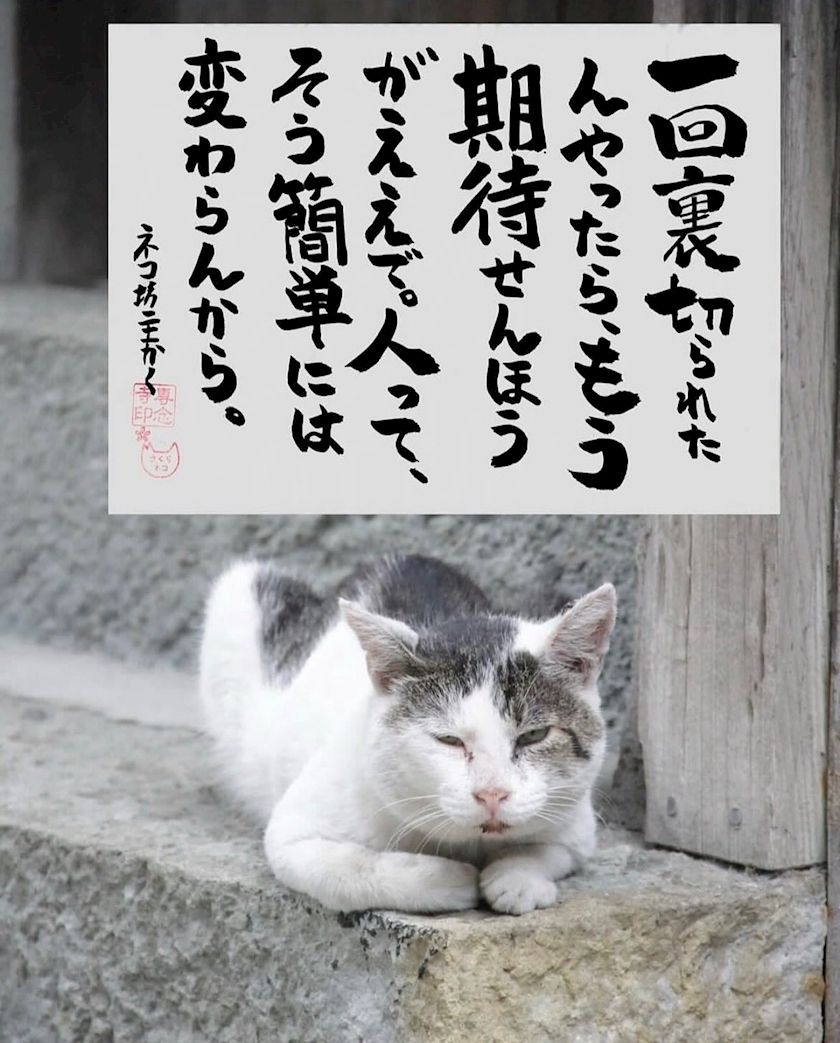 一回裏切られた
んやったら、もう
期待せんほう
がええで。人って、
そう簡単には
変わらんから。
ネコ坊主かく
専念
寺印
さくら
ネコ